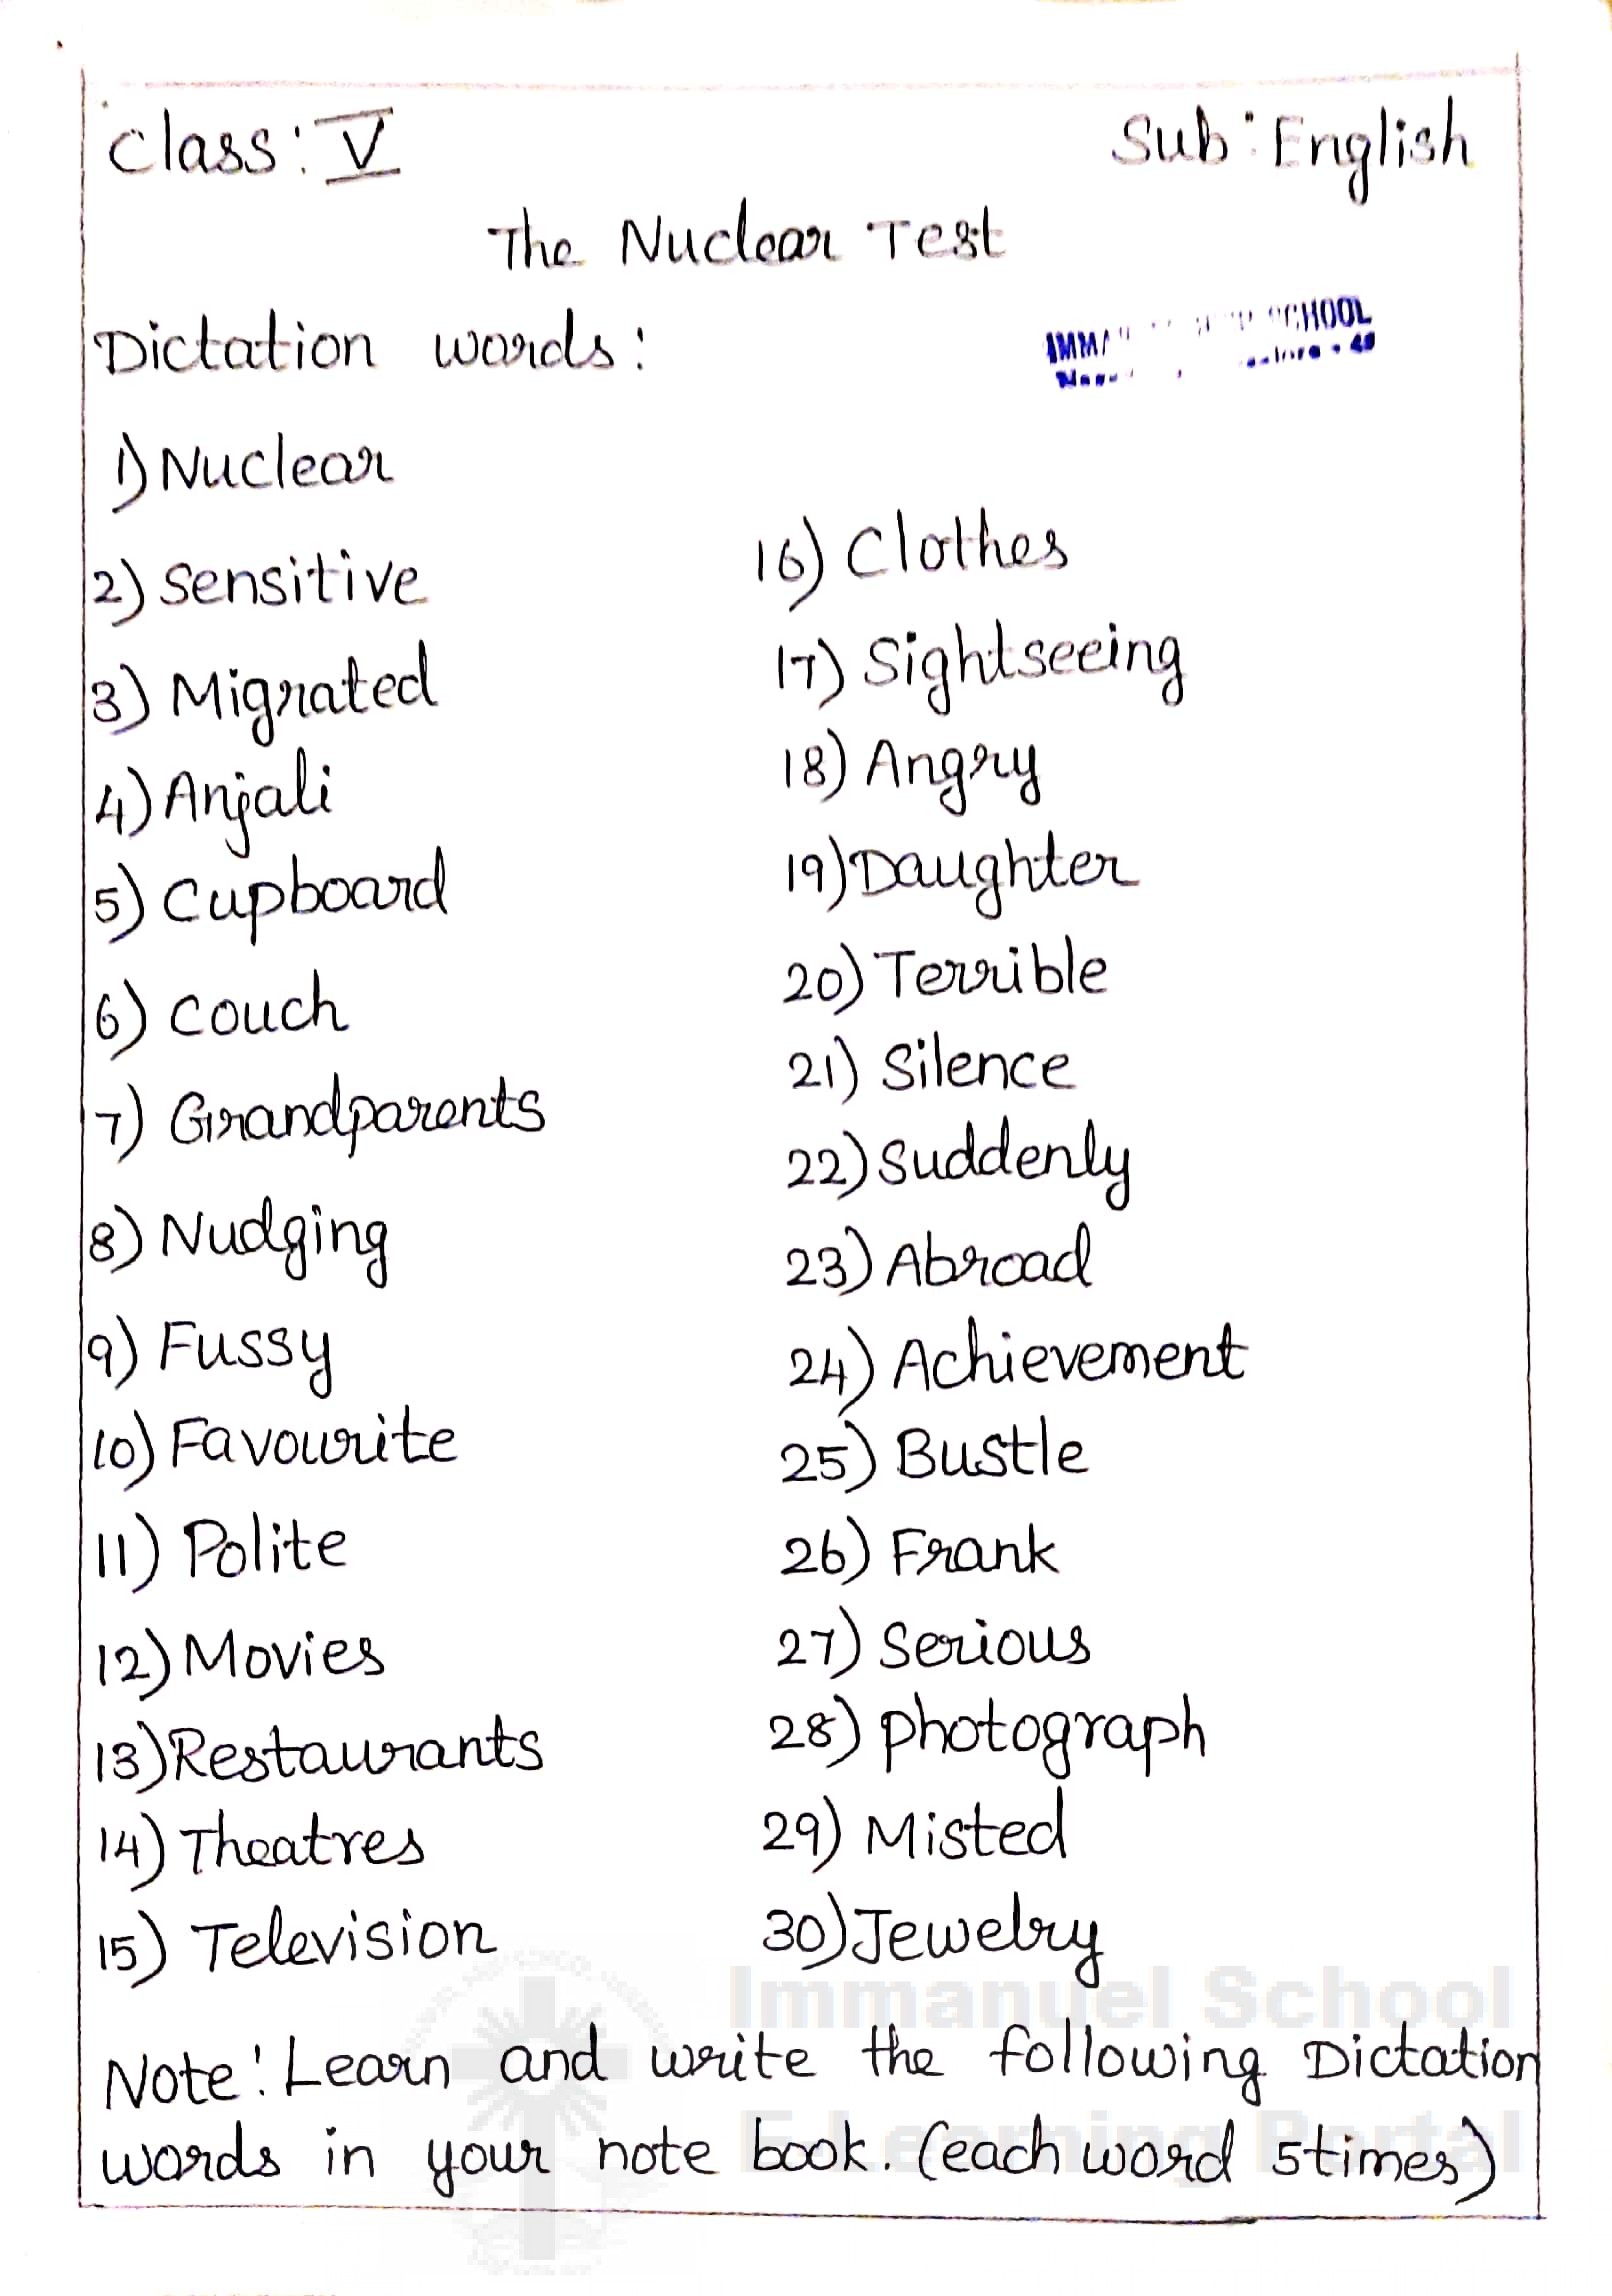 Class: V
Sub: English
The Nuclear Test
Dictation words:
SCHOOL
1) Nuclear
2) Sensitive
3) Migrated
4) Anjali
5) Cupboard
6) Couch
7) Grandparents
8) Nudging
9) Fussy
10) Favourite
11) Polite
12) Movies
13) Restaurants
14) Theatres
15) Television
16) Clothes
17) Sightseeing
18) Angry
19) Daughter
20) Terrible
21) Silence
22) Suddenly
23) Abroad
24) Achievement
25) Bustle
26) Frank
27) Serious
28) Photograph
29) Misted
30) Jewelry
Immanuel School
Note: Learn and write the following Dictation
E-Learning Portal
words in your note book. (each word 5times)